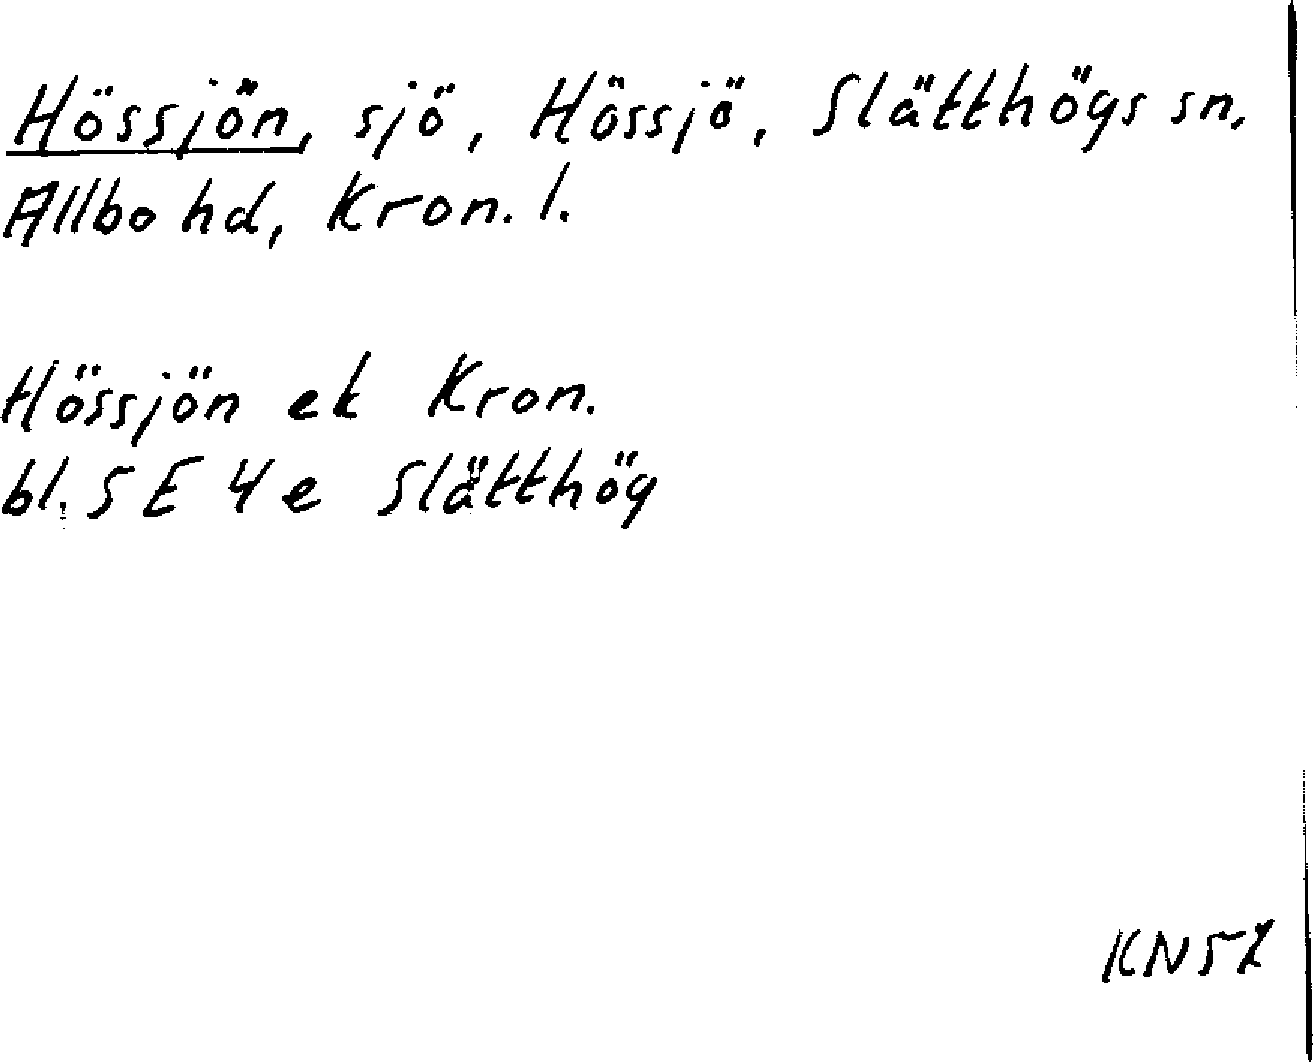 Hössjön, sjö, Hössjö, Slätthögs sn,
Allbo hd, Kron. l.
Hössjön ek Kron.
bl. 5 E 4 e Slätthög